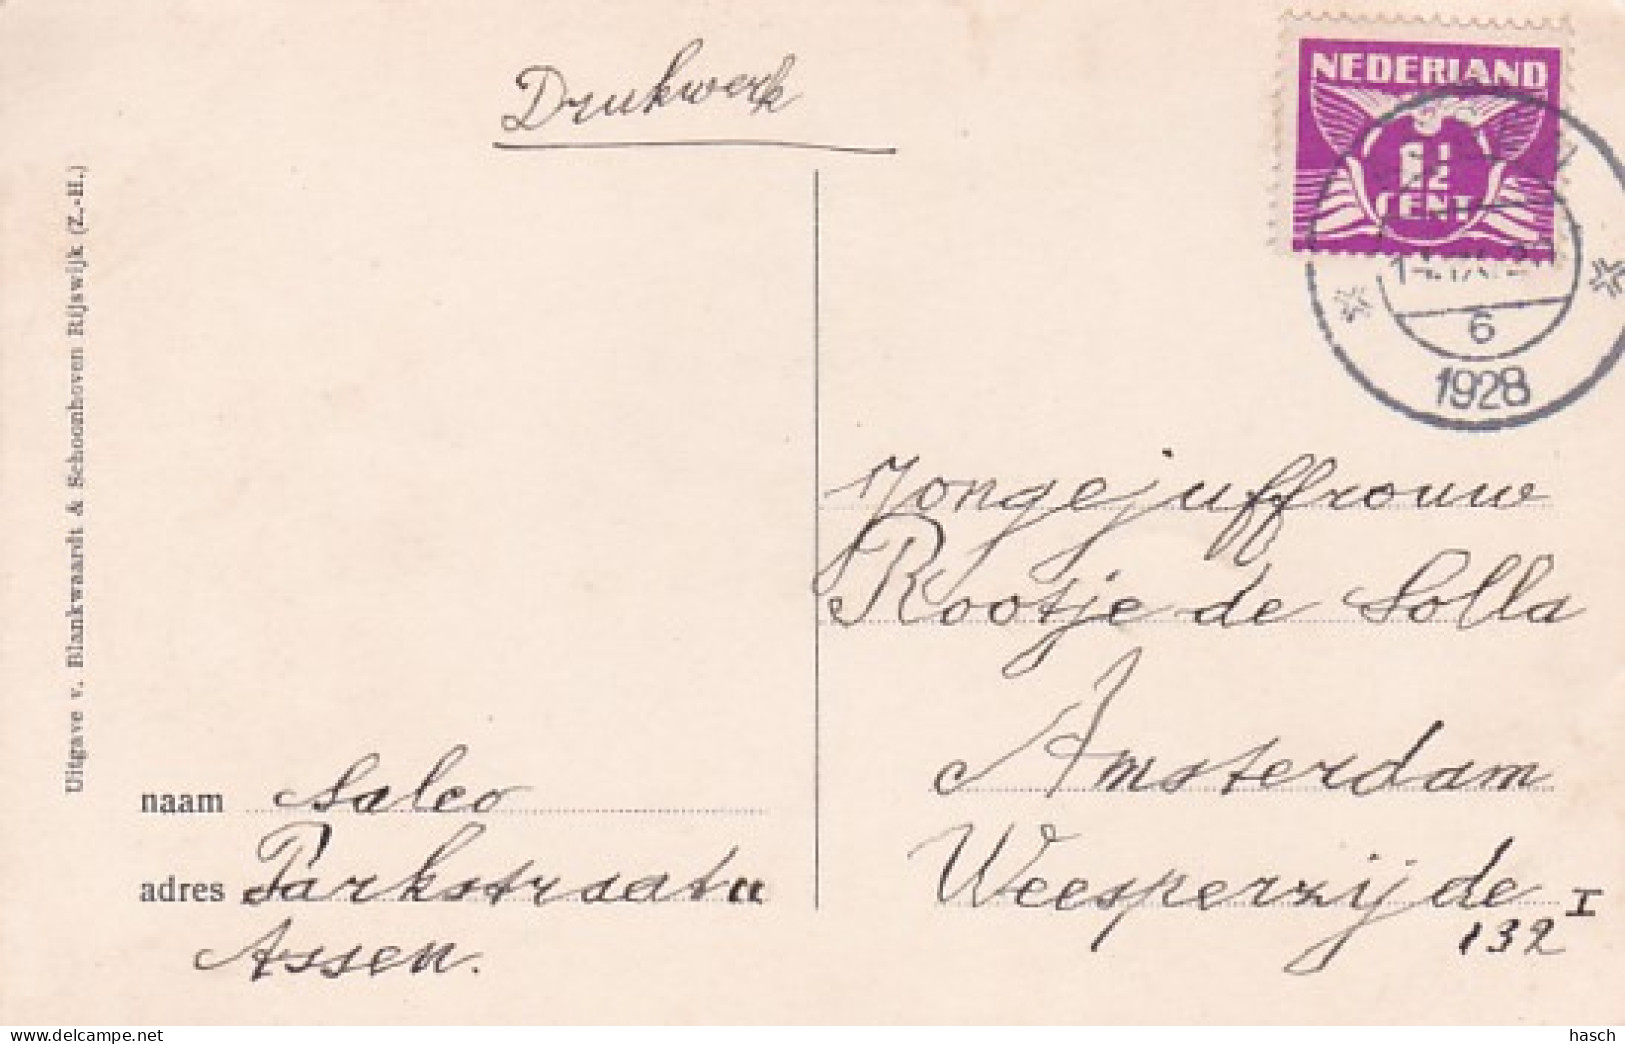 Drukwerk
NEDERLAND
1½
CENT
6
1928
Uitgave v. Blankwaardt & Schoonhoven Rijswijk (Z.-H.)
Jongejuffrouw
Rootje de Solla
Amsterdam
Weesperzijde I
132
naam Salco
adres Parkstraat
Assen.
delcampe.net
hasch